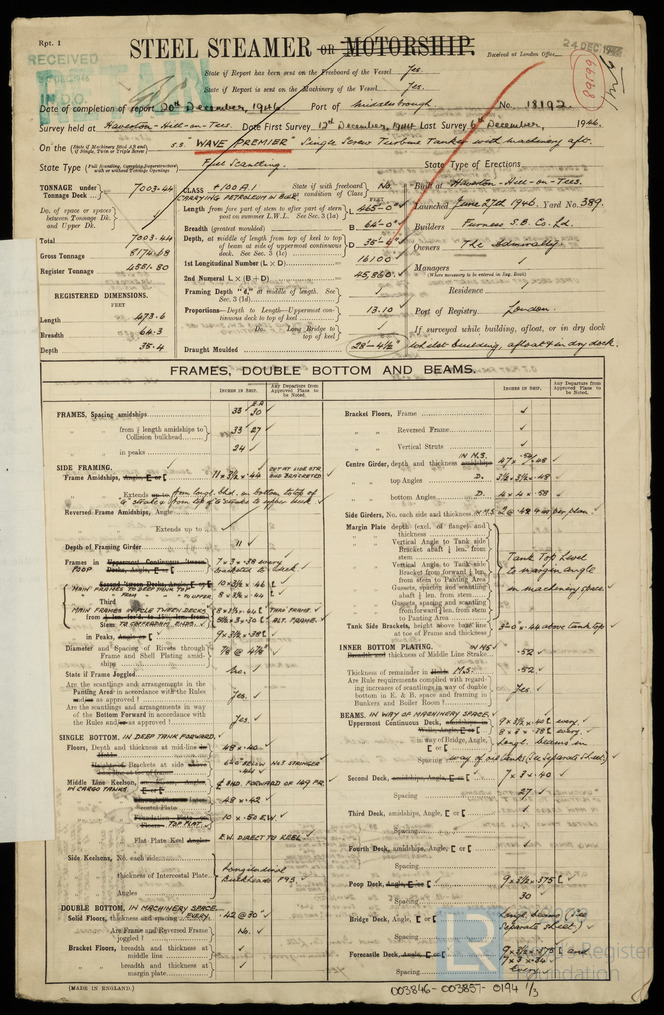 Rpt. 1
RECEIVED
STEEL STEAMER OR MOTORSHIP.
Received at London Office
24 DEC 1946
State if Report has been sent on the Freeboard of the Vessel Yes.
State if Report is sent on the Machinery of the Vessel Yes.
Date of completion of report 20th December, 1946 Port of Middlesbrough. No. 18192
Survey held at Haverton-Hill-on-Tees. Date First Survey 12th December, 1944 Last Survey 6th December, 1946.
On the (State if Machinery fitted Aft and if Single, Twin or Triple Screw) S.S. "WAVE PREMIER" Single Screw Turbine Tanker with machinery aft.
State Type (Full Scantling, Complete Superstructure with or without Tonnage Openings) Full Scantling.
State Type of Erections
TONNAGE under Tonnage Deck 7003.44
Do. of space or spaces between Tonnage Dk. and Upper Dk.
Total 7003.44
Gross Tonnage 8174.48
Register Tonnage 4551.50
REGISTERED DIMENSIONS.
FEET
Length 473.6
Breadth 64.3
Depth 35.4
CLASS +100A.1 State if with freeboard as condition of Class No.
CARRYING PETROLEUM IN BULK
Length from fore part of stem to after part of stern post on summer L.W.L. See Sec. 3 (1a) L 465'-0"
Breadth (greatest moulded) B 64'-0"
Depth, at middle of length from top of keel to top of beam at side of uppermost continuous deck. See Sec. 3 (1c) D 35'-6"
1st Longitudinal Number (L × D) 16100
2nd Numeral L × (B + D) 45,860
Framing Depth "d," at middle of length. See Sec. 3 (1d)
Proportions—Depth to Length—Uppermost continuous deck to top of keel 13.10
Do. Long Bridge to top of keel
Draught Moulded 28'-4½"
Built at Haverton-Hill-on-Tees.
Launched June 27th 1946. Yard No. 389.
Builders Furness S.B. Co. Ld.
Owners The Admiralty
Managers
(Where necessary to be entered in Reg. Book)
Residence
Port of Registry London.
If surveyed while building, afloat, or in dry dock
Whilst building, afloat & in dry dock.
FRAMES, DOUBLE BOTTOM AND BEAMS.
INCHES IN SHIP.
Any Departure from Approved Plans to be Noted.
INCHES IN SHIP.
Any Departure from Approved Plans to be Noted.
FRAMES, Spacing amidships 33 30
" " from ⅕ length amidships to Collision bulkhead 33 27
" " in peaks 24
SIDE FRAMING.
Frame Amidships, Angle, E or [
" " Extends up to
Reversed Frame Amidships, Angle
" " Extends up to
Depth of Framing Girder 11
Frames in Uppermost Continuous 'tween Decks, Angle, E or [ 7 × 3 × .38 every
POOP
Second 'tween Decks, Angle, E or [ 10 × 3½ × .46
MAIN FRAMES TO DEEP TANK TOP
Third 8 × 3½ × .44
MAIN FRAMES IN POLE TWEEN DECKS
in Peaks, Angle or [ 9 × 3½ × .38
Diameter and Spacing of Rivets through Frame and Shell Plating amidships 7/8 @ 4⅞"
State if Frame Joggled No.
Are the scantlings and arrangements in the Panting Area in accordance with the Rules and/or as approved? Yes.
Are the scantlings and arrangements in way of the Bottom Forward in accordance with the Rules and/or as approved? Yes.
SINGLE BOTTOM, IN DEEP TANK FORWARD.
Floors, Depth and thickness at mid-line in Hold 48 × .40
Height of Brackets at side above top line of floor at frame
Middle Line Keelson, on Floors, Angle, E or [
IN CARGO TANKS
Through Plate or Intercostal Plate 48 × .42
Foundation Plate on Floors TOP FLAT 10 × .50 E.W.
Flat Plate Keel Angles E.W. DIRECT TO KEEL
Side Keelsons, No. each side
" " thickness of Intercostal Plate Longitudinal Bulkheads P93.
" " Angles
DOUBLE BOTTOM, IN MACHINERY SPACE.
Solid Floors, thickness and spacing EVERY .42 @ 30"
" " Are Frame and Reversed Frame joggled? No.
Bracket Floors, breadth and thickness at middle line
" " breadth and thickness at margin plate
Bracket Floors, Frame
" " Reversed Frame
" " Vertical Struts
IN M.S.
Centre Girder, depth and thickness amidships 47 × .48
" " top Angles D. 3½ × 3½ × .48
" " bottom Angles D. 4 × 4 × .58
Side Girders, No. each side and thickness
Margin Plate depth (excl. of flange) and thickness
" " Vertical Angle to Tank side Bracket abaft ¼ len. from stem
" " Vertical Angle to Tank side Bracket from forward ¼ len. from stem to Panting Area
" " Gussets, spacing and scantling abaft ¼ len. from stem
" " Gussets, spacing and scantling from forward ¼ len. from stem to Panting Area
Tank Top Level to margin angle in machinery space
Tank Side Brackets, height above base line at toe of Frame and thickness 3'-0" × .44 above tank top
INNER BOTTOM PLATING. IN M.S
Breadth and thickness of Middle Line Strake .52
Thickness of remainder in Hold M.S. .52
Are Rule requirements complied with regarding increases of scantlings in way of double bottom in E. & B. space and framing in Bunkers and Boiler Room? Yes.
BEAMS. IN WAY OF MACHINERY SPACE.
Uppermost Continuous Deck, amidships 9 × 3½ × .40 every.
Wells, Angle, E or [ 8 × 3 × .38 every.
" " in way of Bridge, Angle, E or [ Longl. beams in
Spacing way of oil tanks (see separate sheet)
Second Deck, amidships, Angle, E or [ 7 × 3 × .40
Spacing 27
Third Deck, amidships, Angle, E or [
Spacing
Fourth Deck, amidships, Angle, E or [
Spacing
Poop Deck, Angle, E or [ 9 × 3½ × .375
Spacing 30
Bridge Deck, Angle, E or [ Longl. beams (See
Spacing Separate sheet.)
Forecastle Deck, Angle, E or [ 9 × 3½ × .375 and
7 × 3 × .34
Spacing Every
(MADE IN ENGLAND.)
003846-003857-0194 1/3
LR
Lloyd's Register
Foundation